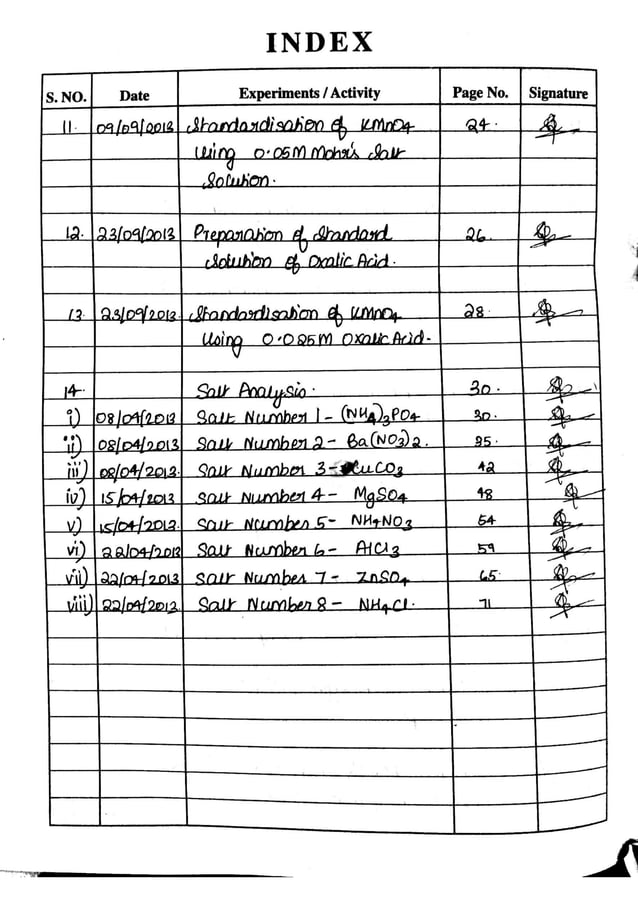 INDEX
S. NO. Date Experiments / Activity Page No. Signature
11. 09/09/2013 Standardisation of KMnO4 24.
using 0.05M Mohr's Salt
Solution.
12. 23/09/2013 Preparation of Standard 26.
Solution of Oxalic Acid.
13. 23/09/2013 Standardisation of KMnO4 28.
Using 0.025M Oxalic Acid.
14. Salt Analysis. 30.
i) 08/04/2013 Salt Number 1 - (NH4)3PO4 30.
ii) 08/04/2013 Salt Number 2 - Ba(NO3)2. 35.
iii) 08/04/2013. Salt Number 3 - CuCO3 42
iv) 15/04/2013 Salt Number 4 - MgSO4 48
v) 15/04/2013. Salt Number 5 - NH4NO3 54
vi) 22/04/2013 Salt Number 6 - AlCl3 59
vii) 22/04/2013 Salt Number 7 - ZnSO4 65.
viii) 22/04/2013. Salt Number 8 - NH4Cl. 71